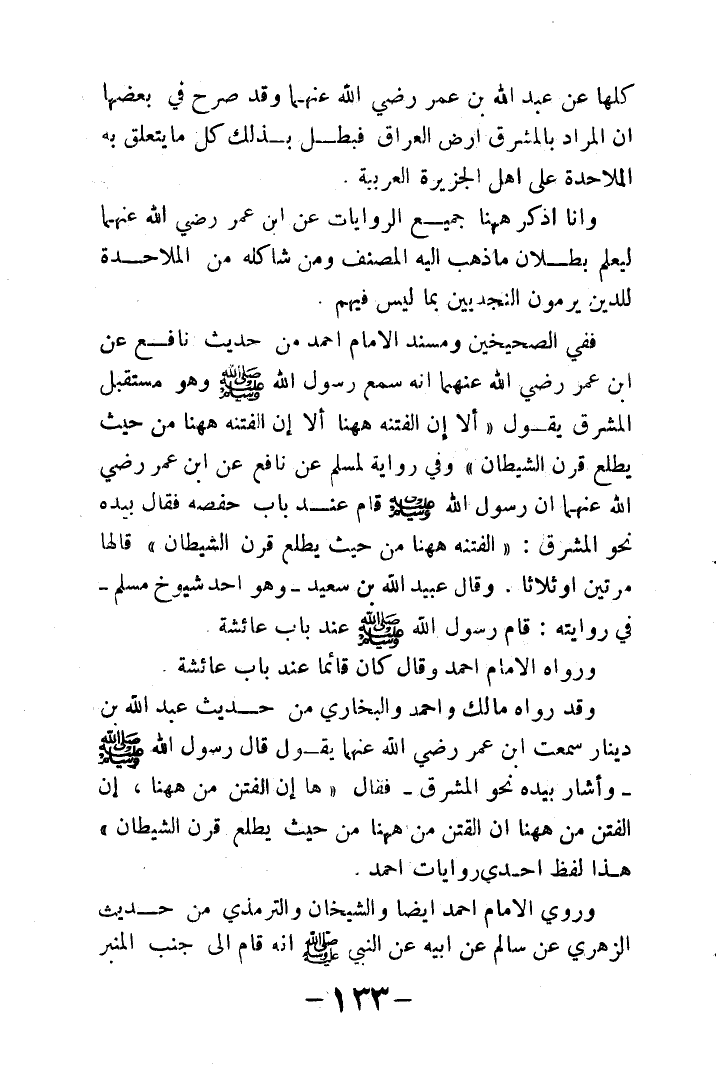 كلها عن عبد الله بن عمر رضي الله عنهما وقد صرح في بعضها
ان المراد بالمشرق ارض العراق فبطـــل بـــذلك كل مايتعلق به
الملاحدة على اهل الجزيرة العربية .
وانا اذكر ههنا جميــع الروايات عن ابن عمر رضي الله عنهما
ليعلم بطـــلان ماذهب اليه المصنف ومن شاكله من الملاحـــدة
للدين يرمون النجديين بما ليس فيهم .
ففي الصحيخين ومسند الامام احمد من حديث نافـــع عن
ابن عمر رضي الله عنهما انه سمع رسول الله ﷺ وهو مستقبل
المشرق يقــول « ألا إن الفتنه ههنا ألا إن الفتنه ههنا من حيث
يطلع قرن الشيطان » وفي رواية لمسلم عن نافع عن ابن عمر رضي
الله عنهما ان رسول الله ﷺ قام عنـــد باب حفصه فقال بيده
نحو المشرق : « الفتنه ههنا من حيث يطلع قرن الشيطان » قالها
مرتين اوثلاثا . وقال عبيد الله بن سعيد ــ وهو احد شيوخ مسلم ــ
في روايته : قام رسول الله ﷺ عند باب عائشة .
ورواه الامام احمد وقال كان قائما عند باب عائشة .
وقد رواه مالك واحمد والبخاري من حـــديث عبد الله بن
دينار سمعت ابن عمر رضي الله عنهما يقــول قال رسول الله ﷺ
ــ وأشار بيده نحو المشرق ــ فقال « ها إن الفتن من ههنا ، إن
الفتن من ههنا ان القتن من ههنا من حيث يطلع قرن الشيطان »
هــذا لفظ احــدي روايات احمد .
وروي الامام احمد ايضا والشيخان والترمذي من حـــديث
الزهري عن سالم عن ابيه عن النبي ﷺ انه قام الى جنب المنبر
ــ ١٣٣ ــ